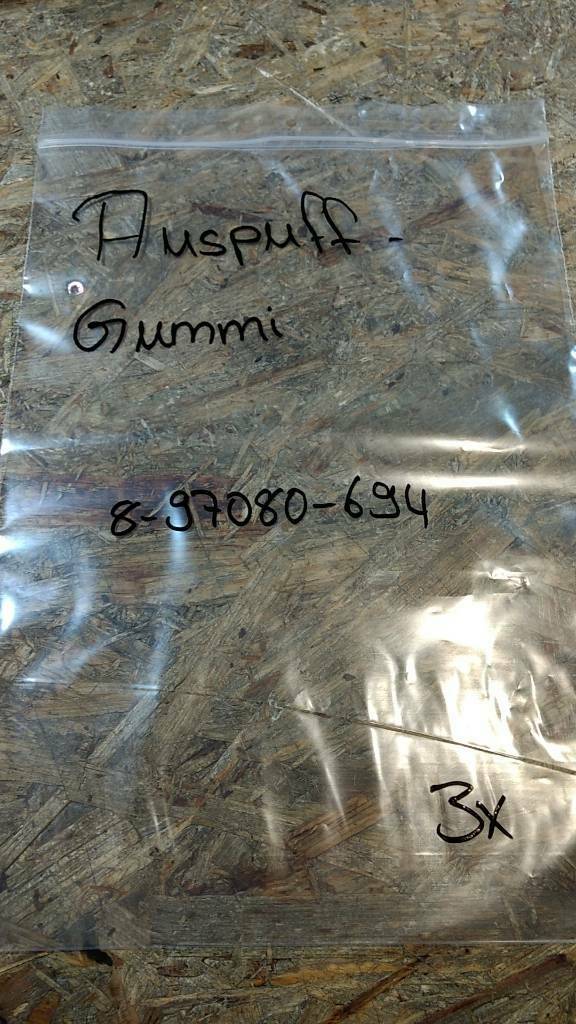 Auspuff-
Gummi
8-97080-694
3x